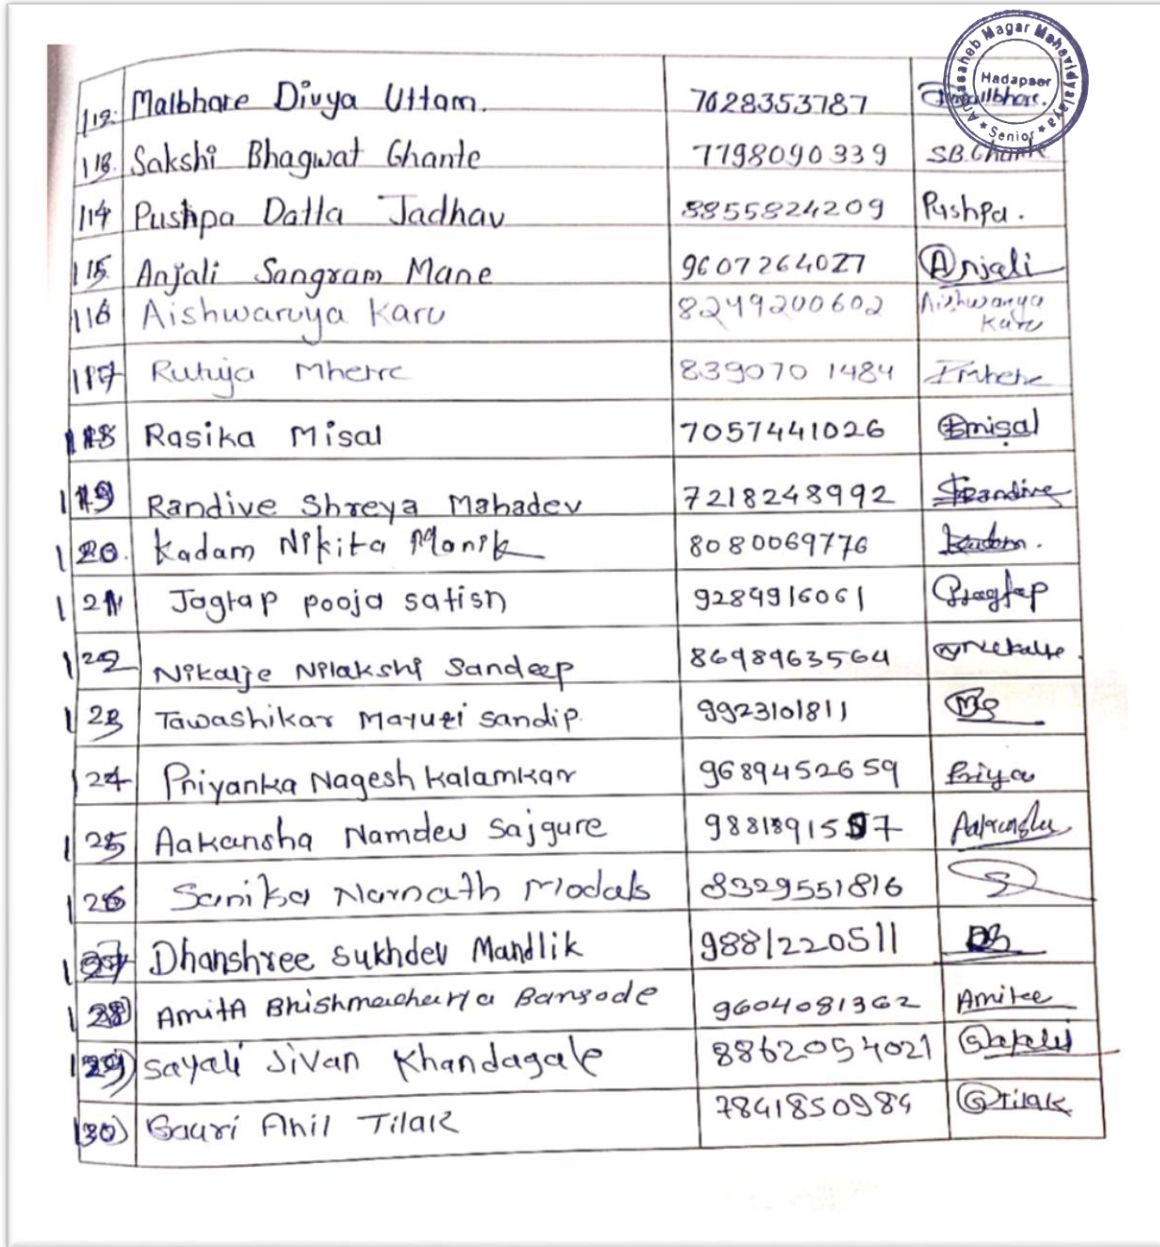 Annasaheb Magar Mahavidyalaya
Hadapsar
Senior
112. Malbhare Divya Uttam. 7628353787 Dmallbhare.
113. Sakshi Bhagwat Ghante 7798090339 SB.Ghante
114 Pushpa Datta Jadhav 8855824209 Pushpa.
115. Anjali Sangram Mane 9607264027 Anjali
116 Aishwaruya Karu 8249200602 Aishwarya
Karu
117 Rutuja Mherre 839070 1484
118 Rasika Misal 7057441026 Rmisal
119 Randive Shreya Mahadev 7218248992 SRandive
120. Kadam Nikita Manik 8080069776 Kadam.
121 Jagtap pooja satish 9284916061 PJagtap
122 Nikalje Nilakshi Sandeep 8698963564
123 Tawashikar Mayuri sandip. 9923101811
124 Priyanka Nagesh Kalamkar 9689452659 Priya
125 Aakansha Namdev Sajgure 9881891597 Aakansha
126 Sanika Narnath Modals 8329551816
127 Dhanshree Sukhdev Mandlik 9881220511
128) AmitA Bhishmacharya Bansode 9604081362 Amitee
129) Sayali Jivan Khandagale 8862054021 Sayali
130) Gauri Anil Tilak 7841850984 GTilak